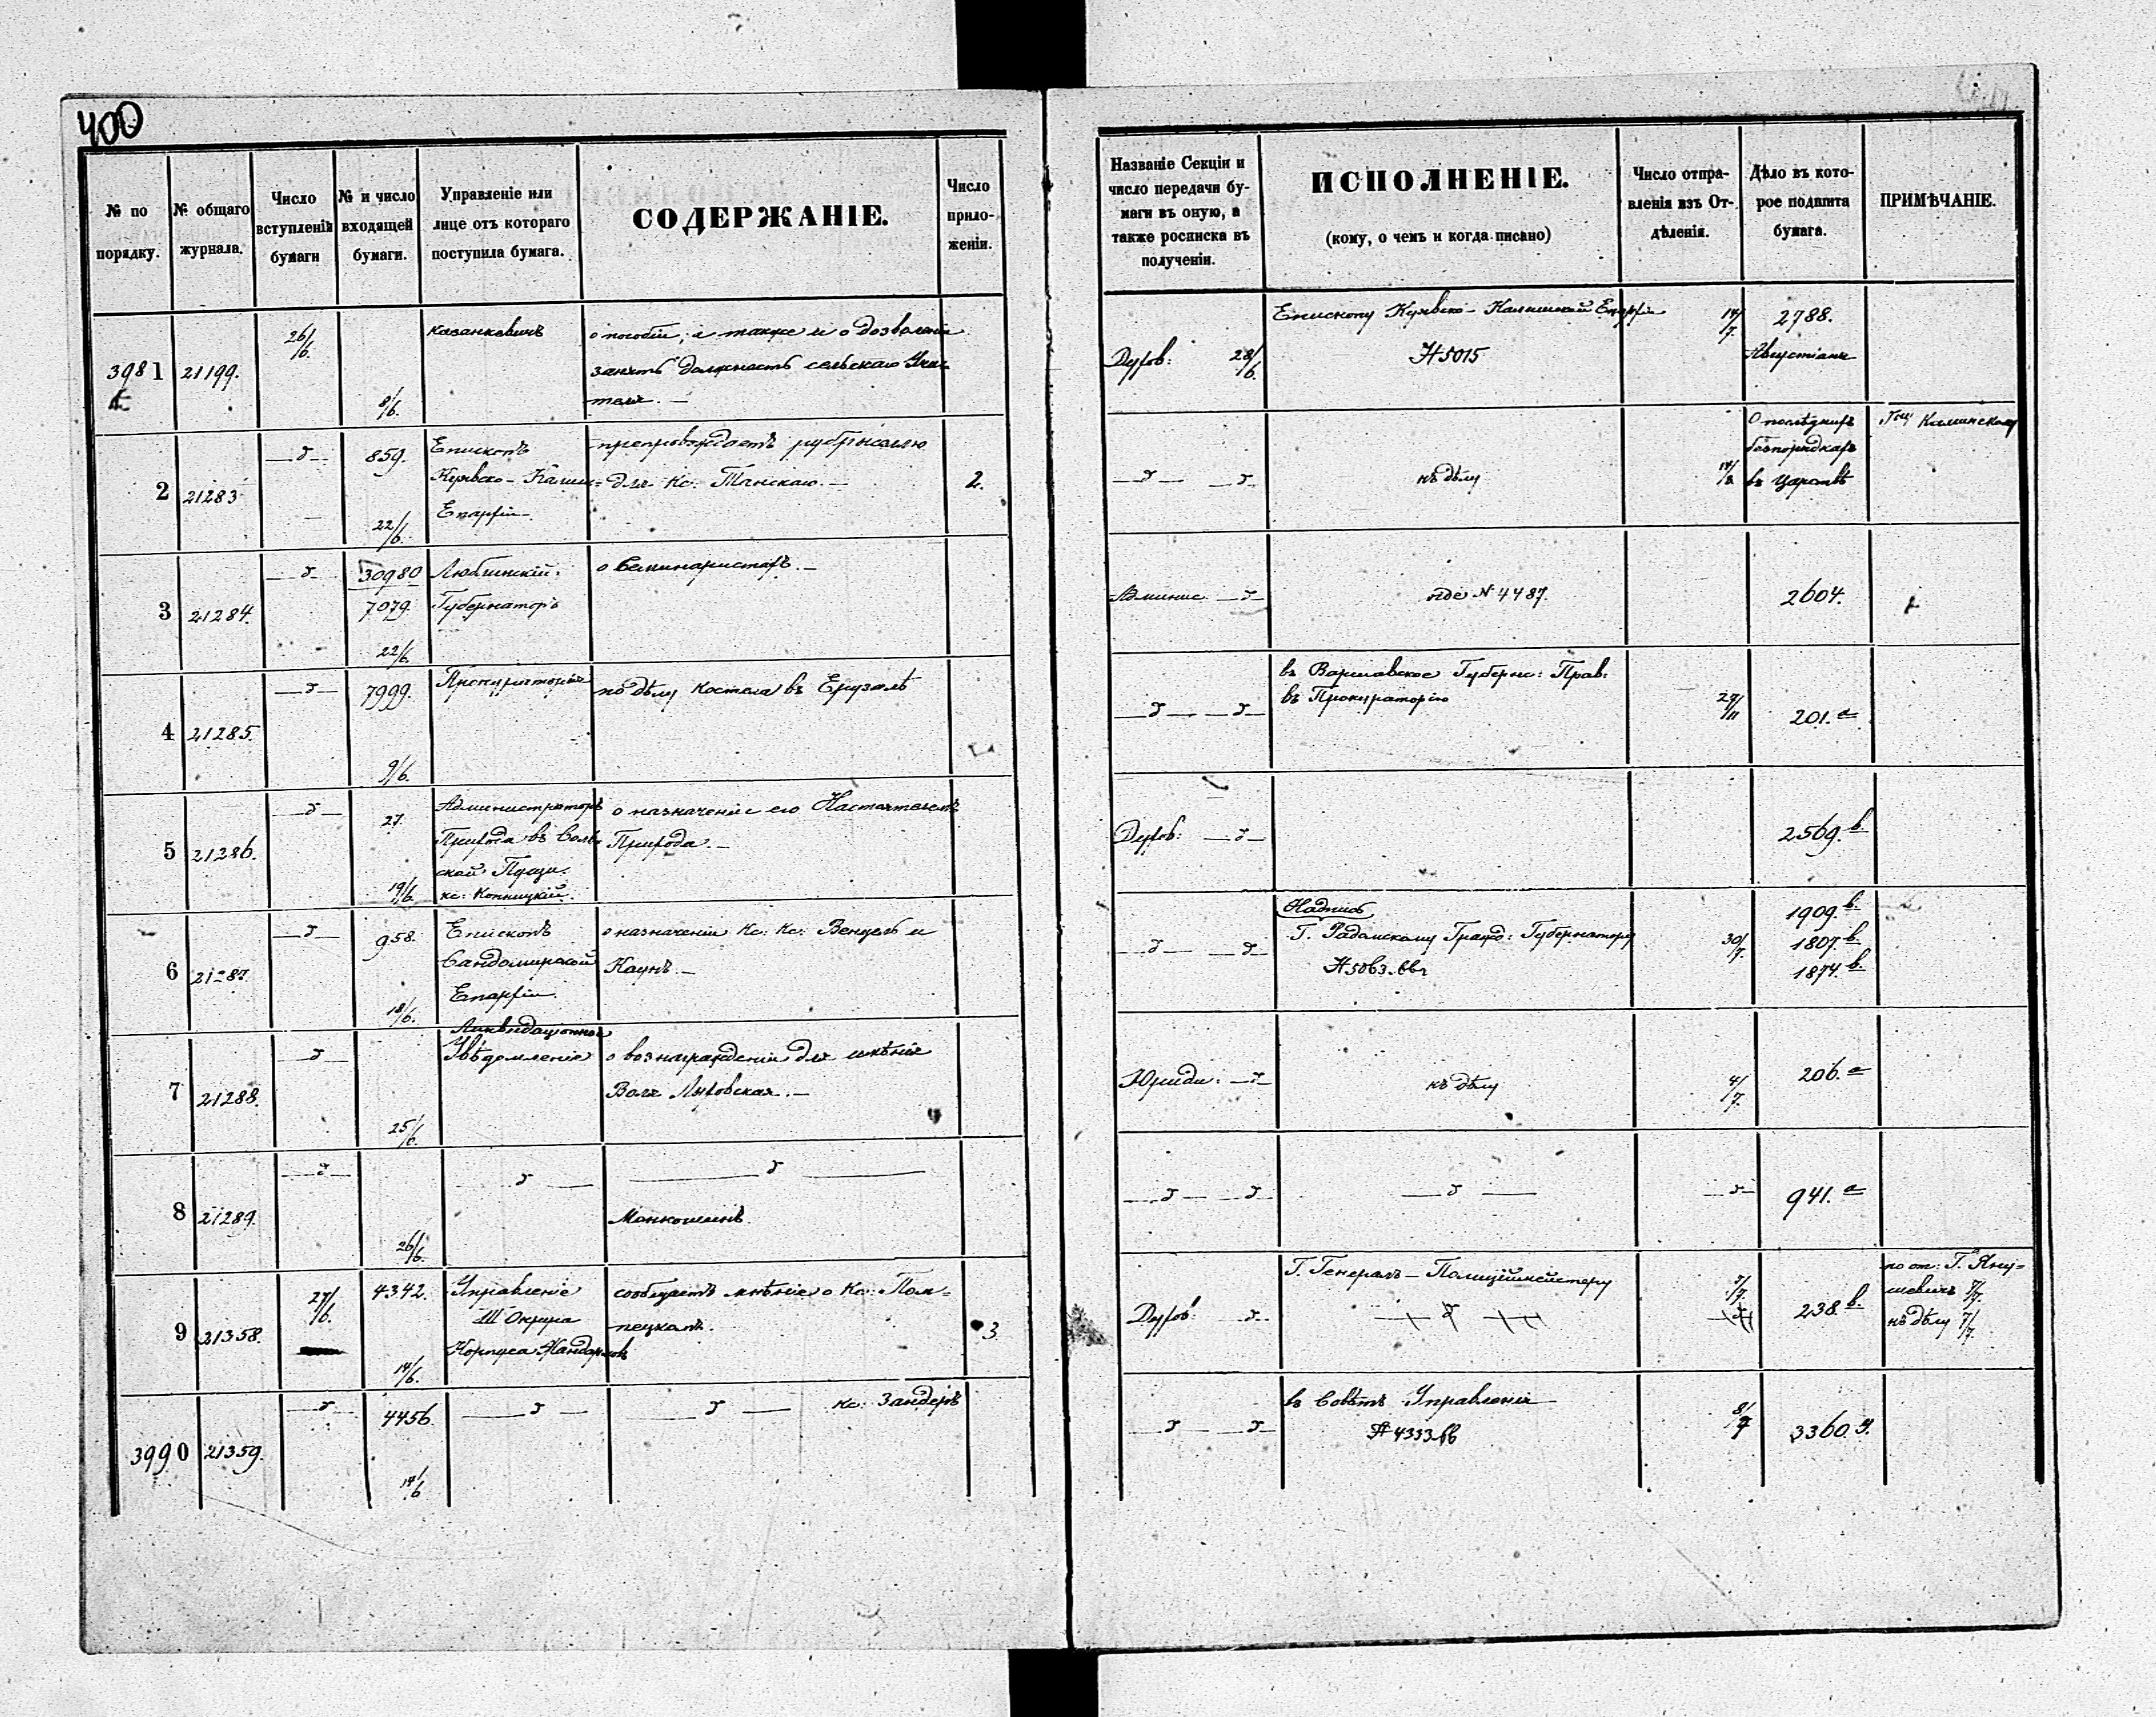 400
№ по порядку.
№ общаго журнала.
Число вступленія бумаги
№ и число входящей бумаги.
Управленіе или лице отъ котораго поступила бумага.
СОДЕРЖАНІЕ.
Число приложеніи.
Названіе Секціи и число передачи бумаги въ оную, а также росписка въ полученіи.
ИСПОЛНЕНІЕ.
(кому, о чемъ и когда писано)
Число отправленія изъ Отдѣленія.
Дѣло въ которое подшита бумага.
ПРИМѢЧАНІЕ.
3981 21199. 26/6. 8/6.
о пособіи, а также и о дозволеніи
занять должность сельскаго Учи-
теля. —
Духов: 28/6.
Епископу Куявско-Калишской Епархіи
№ 5015
14/7.
2788.
2 21283 — д — 859. 22/6.
Епископъ
Куявско-Калиш=
Епархіи
препровождаетъ
для Кс: Танскаго. —
2.
— д — — д —
къ дѣлу
О послѣднихъ
безпорядкахъ
въ Царствѣ
3 21284. — д — 30980
7079. 22/6.
Люблинскій
Губернаторъ
о Семинаристахъ. —
Админис. — д —
№ 4487.
2604.
4 21285. — д — 7999. 9/6.
Прокураторія
по дѣлу костела въ Ерузалѣ
— д — — д —
въ Варшавское Губернс: Прав:
въ Прокураторію
29/11
201. а
5 21286. — д — 27. 19/6.
Администраторъ
Прихода въ Соль-
ской Пущи.
кс:
о назначеніе его Настоятелемъ
Прихода. —
Духов: — д —
2569. в.
6 21287. — д — 958. 18/6.
Епископъ
Сандомирской
Епархіи.
о назначеніи Кс: Кс: Венцель и
Каунъ. —
— д — — д —
Надпись
Г. Радомскому Гражд: Губернатору
30/7.
1909. в.
1807. в.
1874. в.
7 21288. — д — 25/6.
Ликвидаціонное
Увѣдомленіе
о вознагражденіи для имѣнія
Воля Луховская. —
Юриди: — д —
къ дѣлу
4/7.
206. а
8 21289. — д — 26/6.
— д —
— д —
— д — — д —
— д —
— д —
941. а
9 21358. 27/6. 4342. 14/6.
Управленіе
III Округа
Корпуса Жандармовъ
сообщаетъ мнѣніе о Кс: Пом-
пецкомъ.
3
Духов: — д —
Г. Генералъ-Полиціймейстеру
7/7.
238. в.
по от: Г. Яну=
шевичъ 7/7.
къ дѣлу 7/7.
3990 21359. — д — 4456. 14/6
— д —
— д — кс: Зандеръ
— д — — д —
въ Совѣтъ Управленія
№ 4333
8/7
3360.